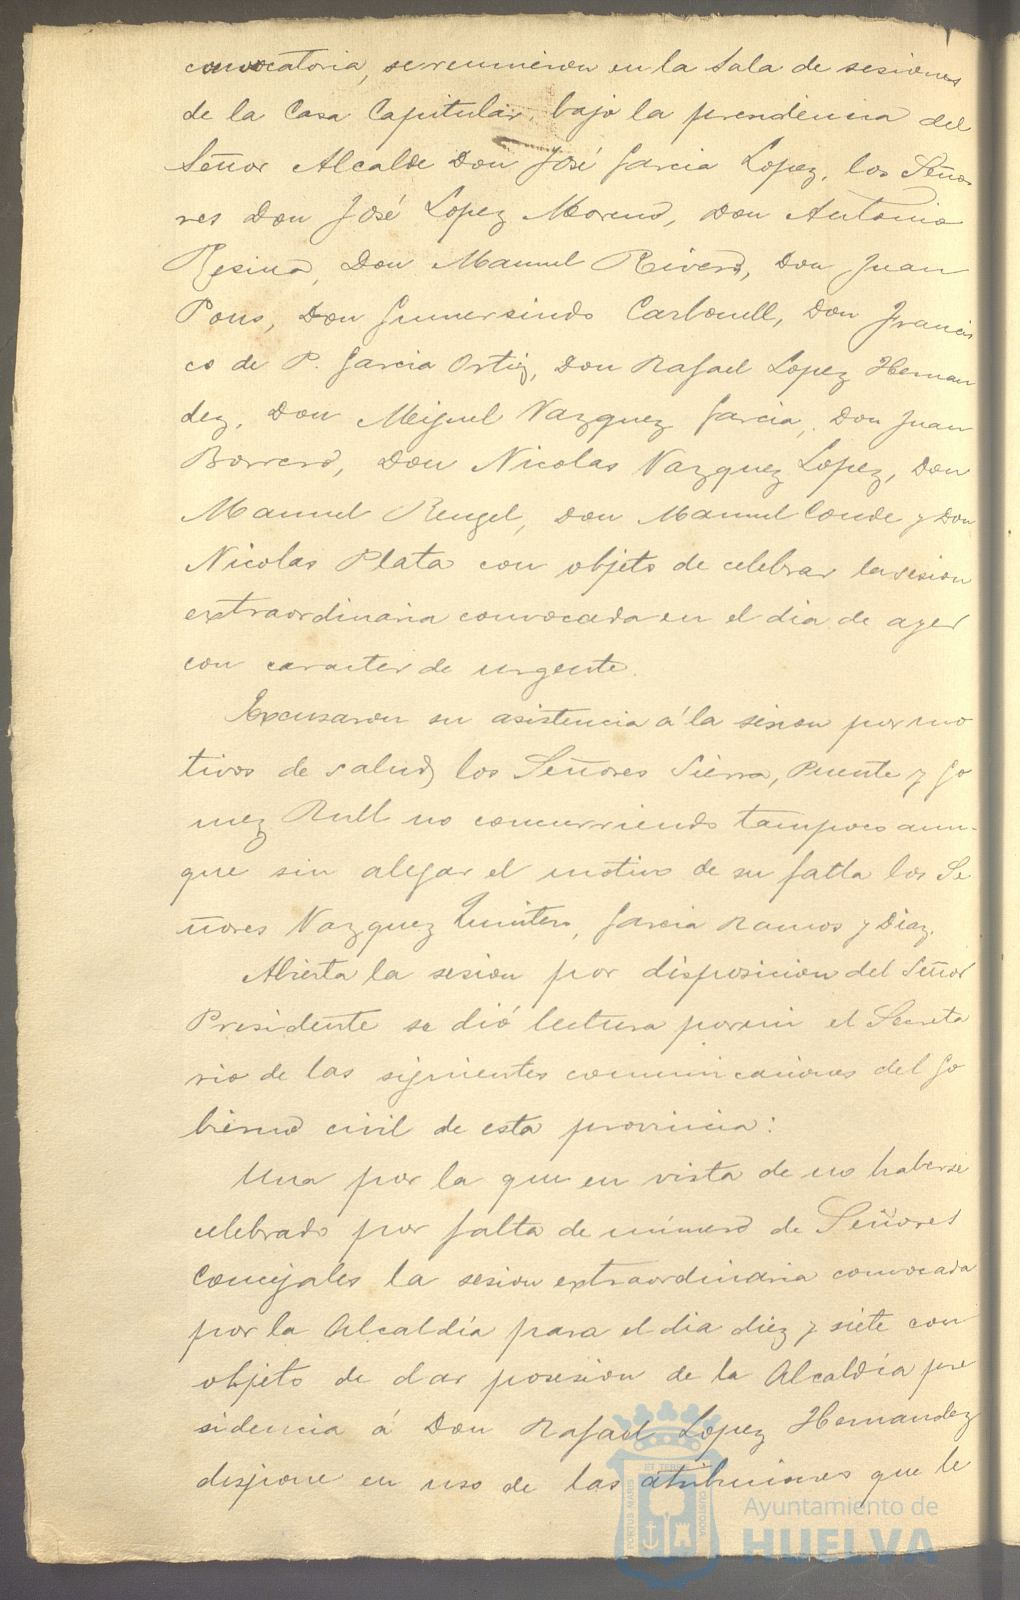 convocatoria, se reunieron en la Sala de sesiones
de la Casa Capitular, bajo la presidencia del
Señor Alcalde Don José Garcia Lopez, los Seño
res Don José Lopez Moreno, Don Antonio
Resina, Don Manuel Rivero, Don Juan
Pons, Don Gumersindo Carbonell, Don Francis
co de P. Garcia Ortiz, Don Rafael Lopez Hernan
dez, Don Miguel Vazquez Garcia, Don Juan
Borrero, Don Nicolas Vazquez Lopez, Don
Manuel Rengel, Don Manuel Conde y Don
Nicolas Plata con objeto de celebrar la sesion
extraordinaria convocada en el dia de ayer
con caracter de urgente.
Excusaron su asistencia á la sesion por mo
tivos de salud, los Señores Sierra, Puente y Go
mez Rull no concurriendo tampoco aun-
que sin alegar el motivo de su falta los Se
ñores Vazquez Quintero, Garcia Ramos y Diaz.
Abierta la sesion por disposicion del Señor
Presidente se dió lectura por mi el Secreta
rio de las siguientes comunicaciones del Go
bierno civil de esta provincia:
Una por la que en vista de no haberse
celebrado por falta de número de Señores
Concejales la sesion extraordinaria convocada
por la Alcaldía para el dia diez y siete con
objeto de dar posesion de la Alcaldía pre
sidencia á Don Rafael Lopez Hernandez
dispone en uso de las atribuciones que le
Ayuntamiento de
HUELVA
PORTUS MARIS ET TERRE CUSTODIA